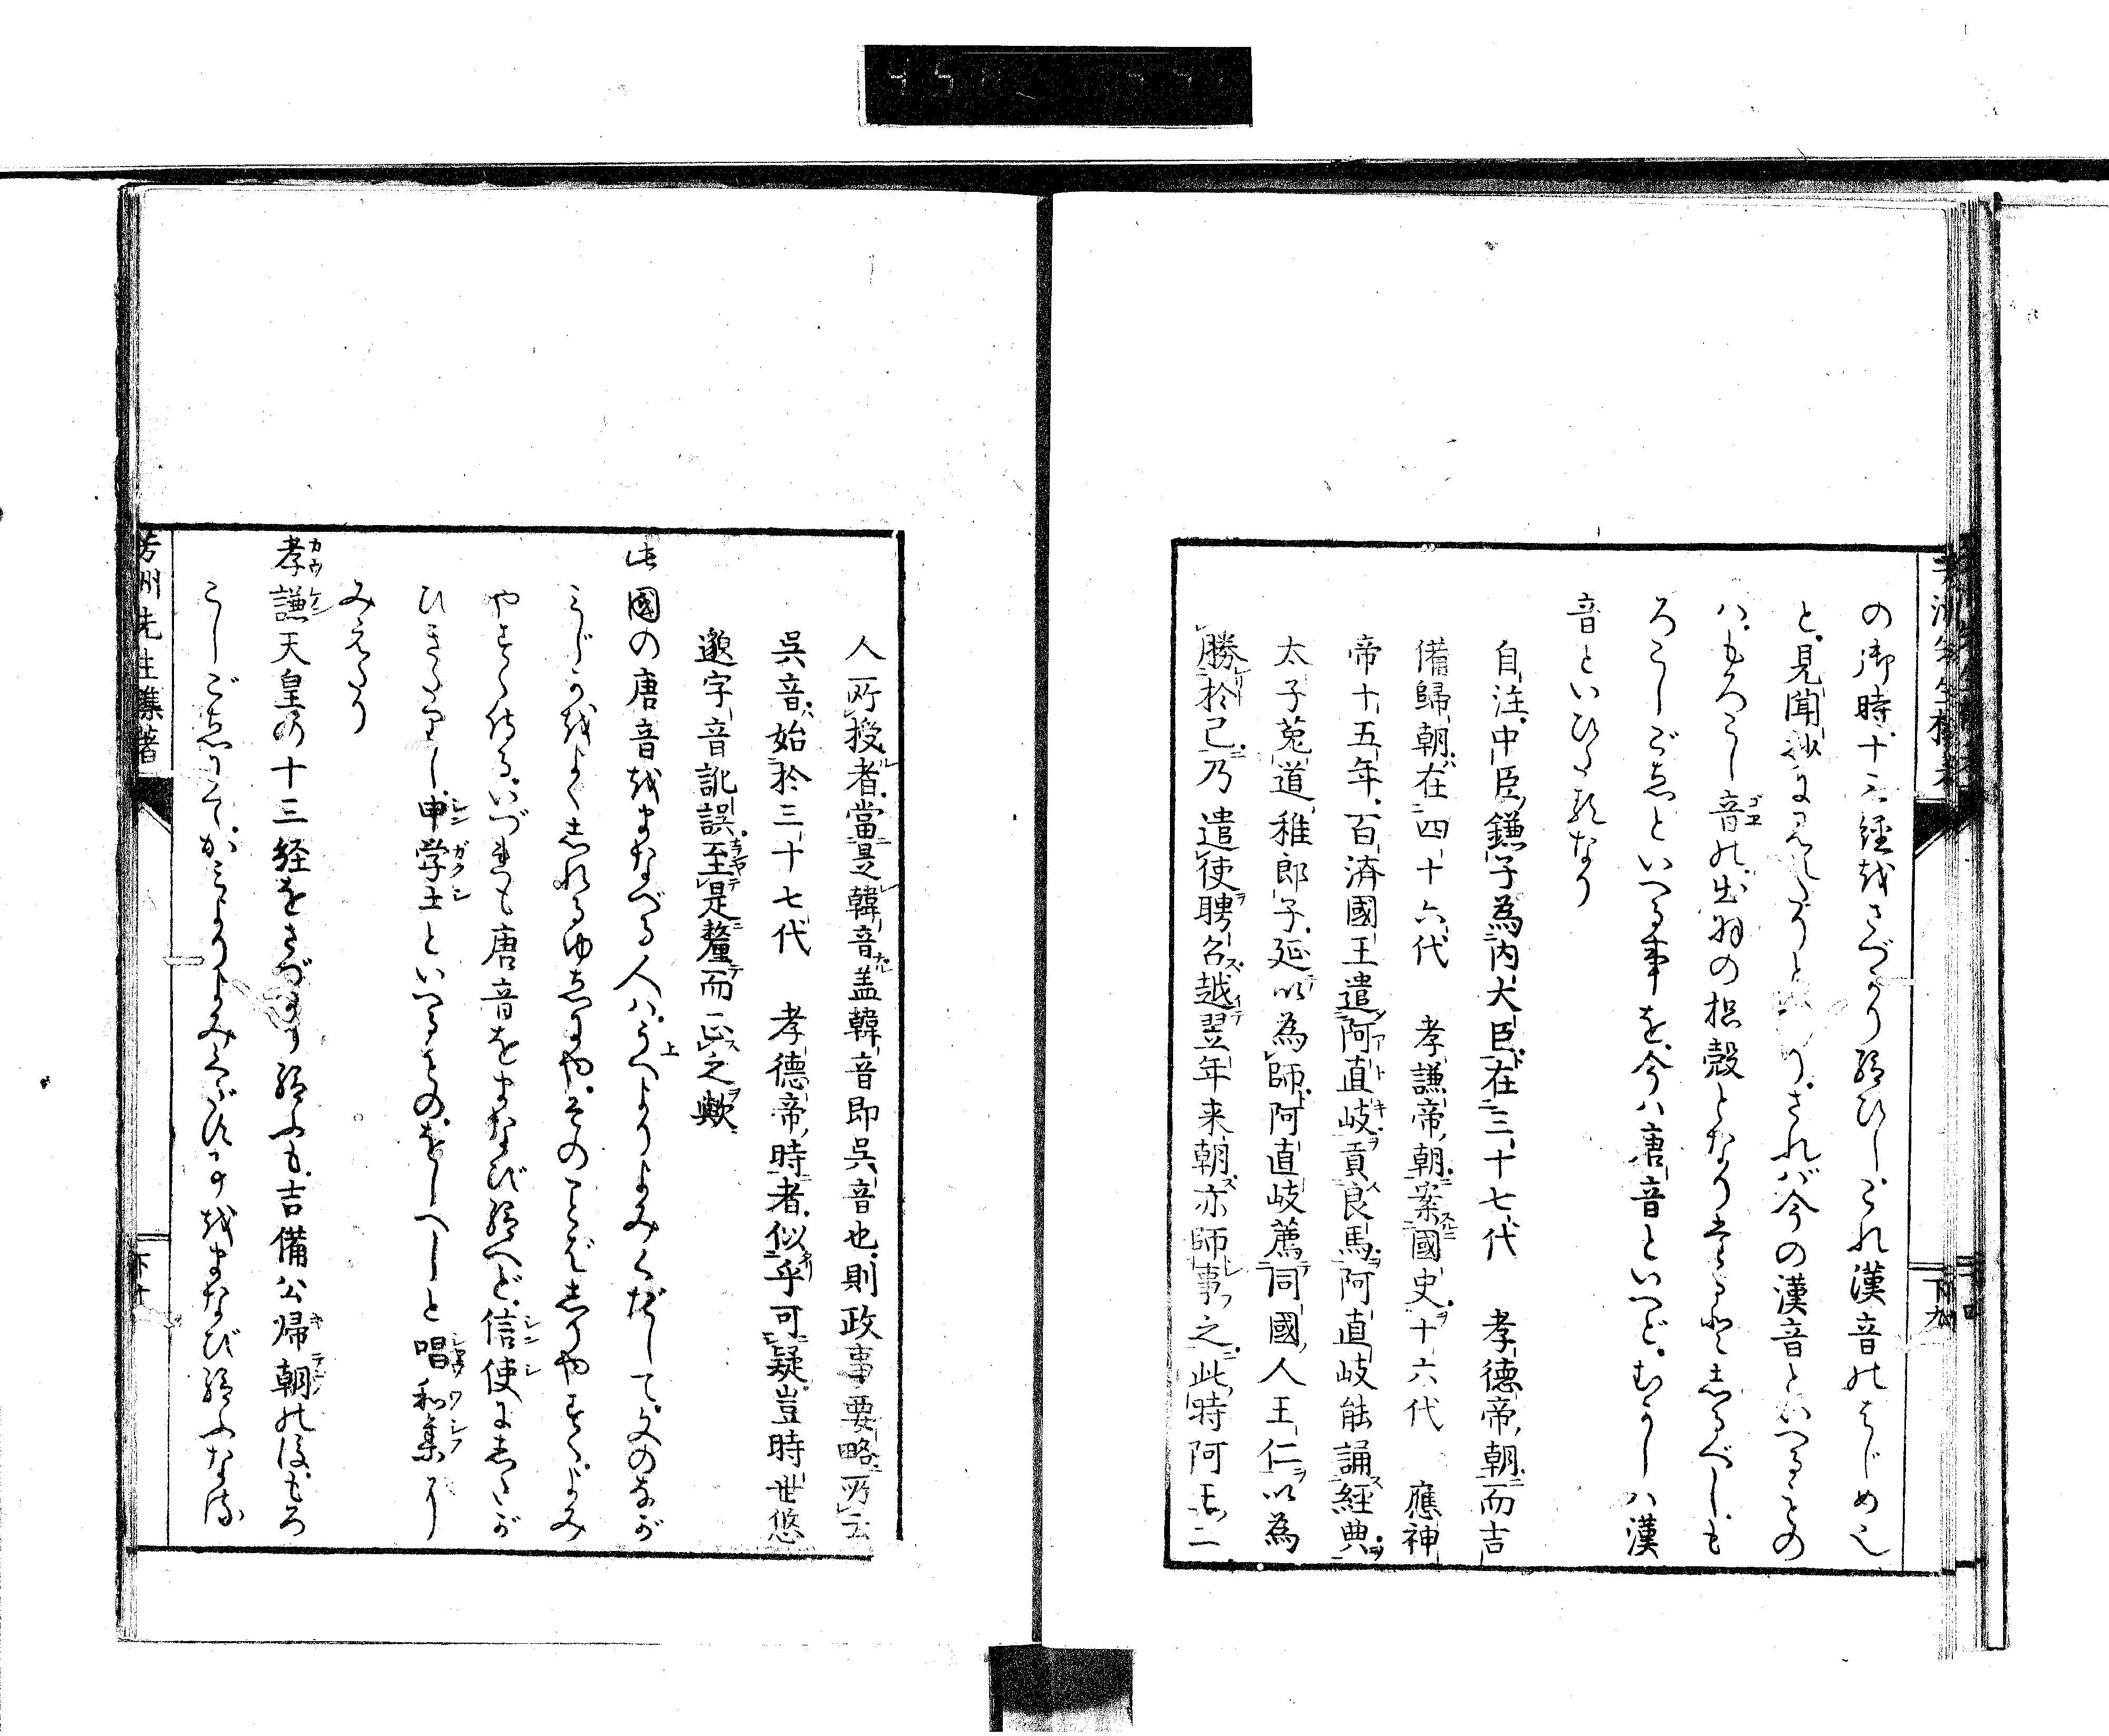 の御時、十三經をさづかり給ひし、これ漢音のはじめ也
と、見聞抄に見えたりと
ハ、もろこし音の出羽の枳殻となりたるとしるべし、も
ろこしごゑといへる事を、今ハ唐音といへど、むかしハ漢
音といひたるなり
自注、中臣鎌子為内大臣、在三十七代 孝德帝朝、而吉
備歸朝、在四十六代 孝謙帝朝、案國史、十六代 應神
帝十五年、百済國王遣阿直岐貢良馬、阿直岐能誦經典、
太子菟道稚郎子、延以為師、阿直岐薦同國人王仁、以為
勝於己、乃遣使聘召、越翌年来朝、亦師事之、此時阿王二
人所授者、當是韓音、盖韓音即呉音也、則政事要略所云
呉音始於三十七代 孝德帝時者、似乎可疑、豈時世悠
邈、字音訛誤、至是釐而正之歟
此國の唐音をまなべる人ハ、うへよりよみくだして、文のなが
みじかをよくしれるゆゑにや、そのことばしりやすく、よみ
やすく侍る、いづれも唐音をまなび給へど、信使にしたが
ひきたりし、申学士といへるもの、をしへしと唱和集に
みえたり
孝謙天皇の十三経をさづかり給ふも、吉備公帰朝の後、もろ
こしごゑにて、かみよりよみくだす事をまなび給ふなる
芳洲先生雋著
下九
下十